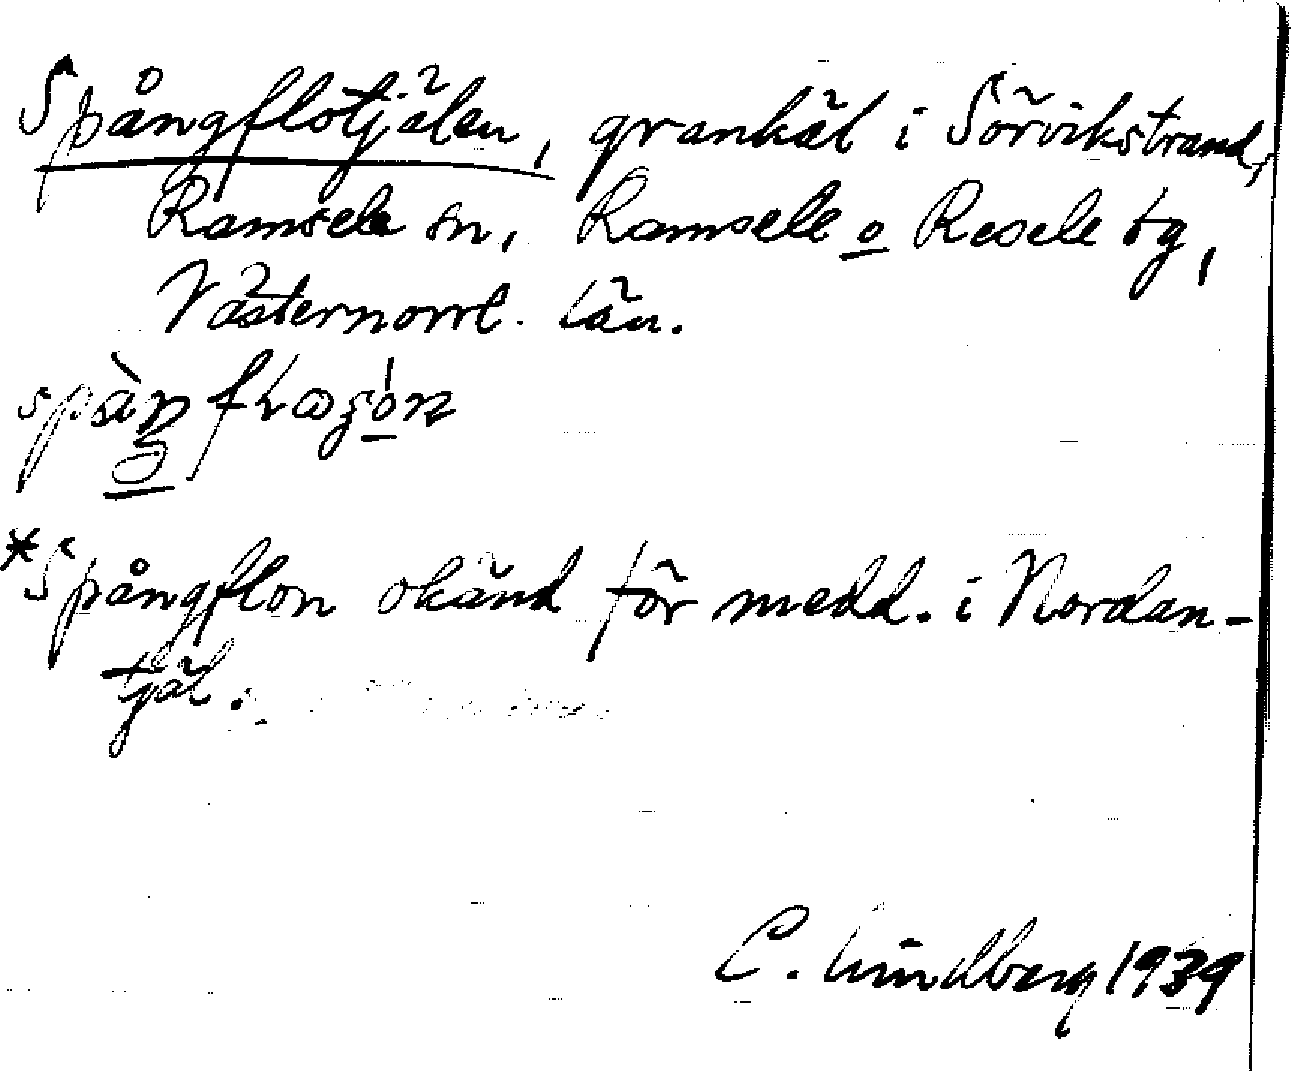 Spångflötjälen, grankäl i Sörvikstrand,
Ramsele sn, Ramsele o Resele tg,
Västernorrl. län.
*Spångflon okänd för medd. i Nordan-
tjäl.
C. Lindberg 1939